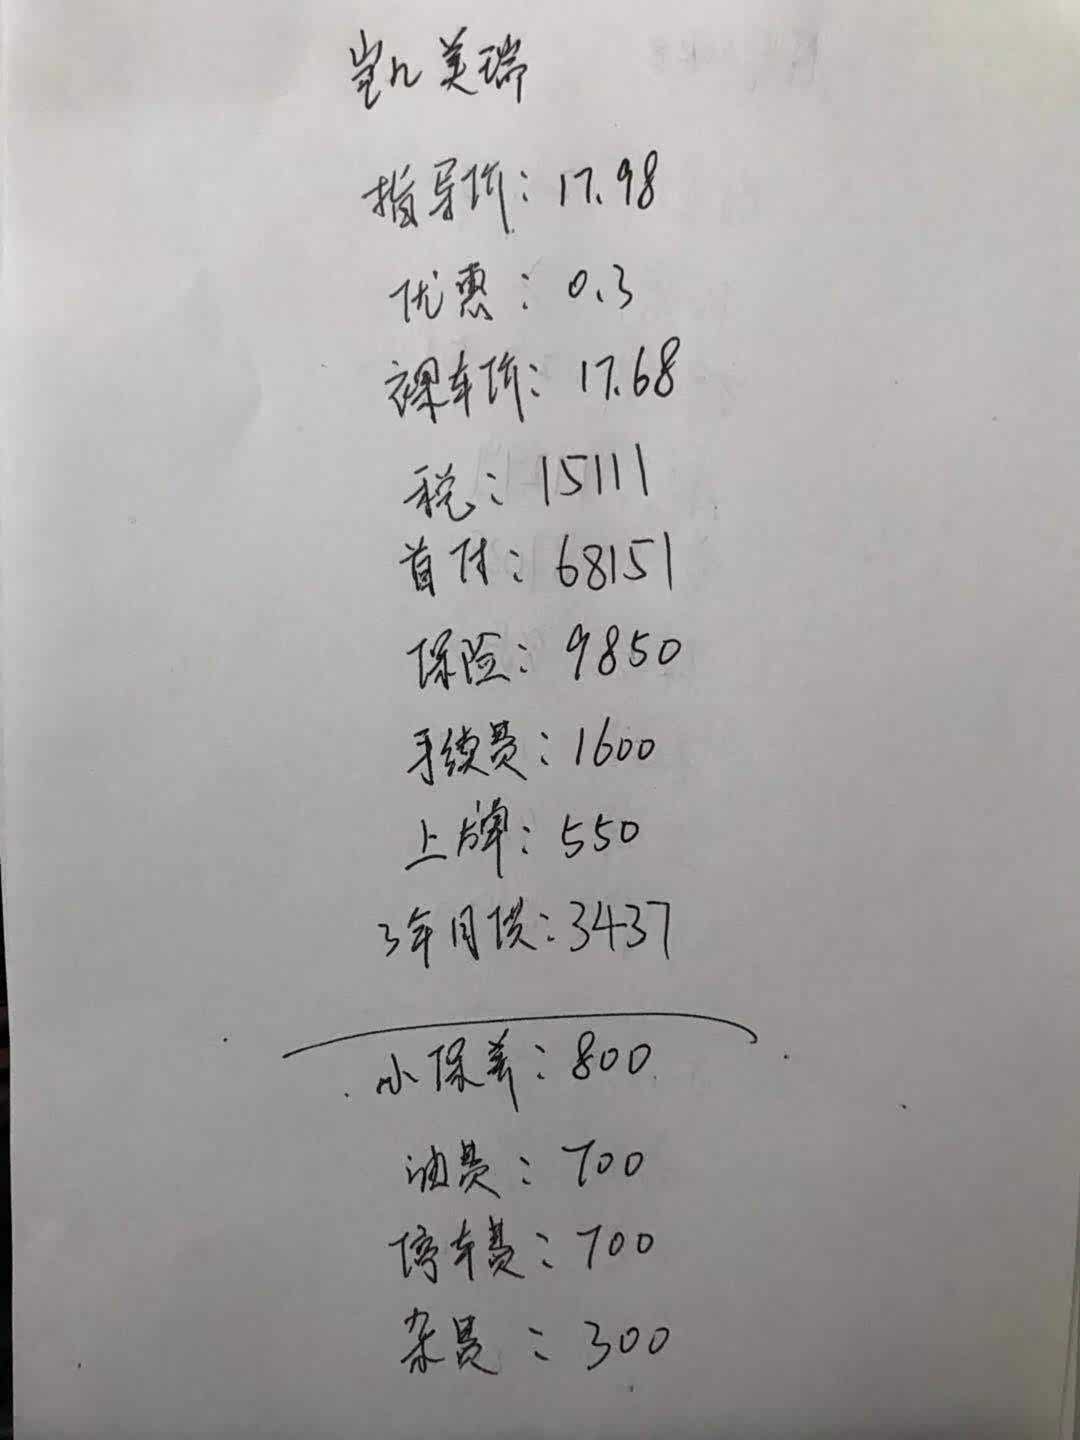 凯美瑞
指导价：17.98
优惠：0.3
裸车价：17.68
税：15111
首付：68151
保险：9850
手续费：1600
上牌：550
3年月供：3437
小保养：800
油费：700
停车费：700
杂费：300